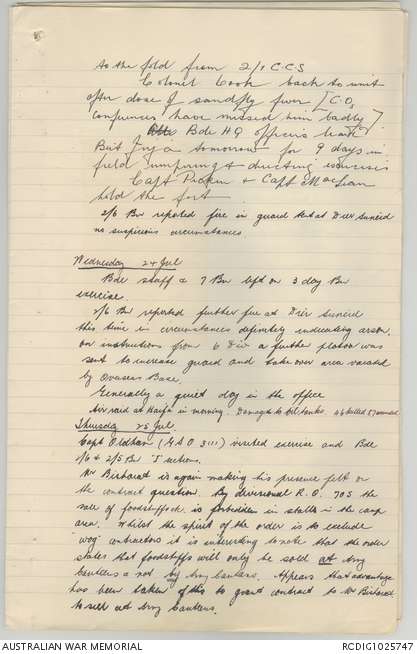 to the field from 2/1 C.C.S
Colonel Cook back to unit
after dose of sandfly fever [C.O's
conferences have missed him badly]
Bde HQ officers back
But Brig a tomorrow for 9 days in
field umpiring & directing exercises
Capt & Capt MacLean
hold the fort
2/6 Bn reported fire in guard tent at Dier Suneid
no suspicious circumstances
Wednesday 24 Jul
Bde staff & 7 Bn left on 3 day Bn
exercise.
2/6 Bn reported further fire at Dier Suneid
this time in circumstances definitely indicating arson.
On instructions from 6 Div a further platoon was
sent to increase guard and take over area vacated
by Overseas Base.
Generally a quiet day in the office
Air raid at Haifa in morning. Damage to oil tanks. 46 killed 87 wounded
Thursday 25 Jul
Capt Oldham (G.S.O 3 ) visited exercise and Bde
2/6 & 2/5 Bn 'I' sections.
Mr Birharat is again making his presence felt on
the contract question. By divisional R.O. 705 the
sale of foodstuffs is forbidden in stalls in the camp
area. Whilst the spirit of the order is to exclude
wog contractors it is interesting to note that the order
states that foodstuffs will only be sold at Army
Canteens & not by Army Canteens. Appears that advantage
has been taken of this to grant contract to Mr Birharat
to sell at Army Canteens.
AUSTRALIAN WAR MEMORIAL
RCDIG1025747